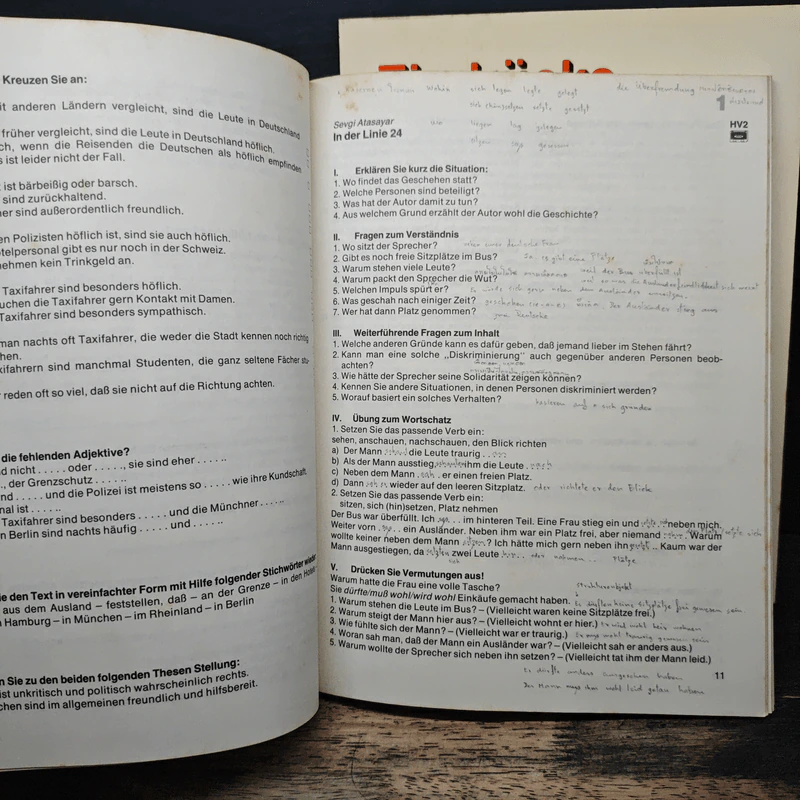 Kreuzen Sie an:
it anderen Ländern vergleicht, sind die Leute in Deutschland
früher vergleicht, sind die Leute in Deutschland höflich.
ch, wenn die Reisenden die Deutschen als höflich empfinden
s ist leider nicht der Fall.
ist bärbeißig oder barsch.
sind zurückhaltend.
her sind außerordentlich freundlich.
en Polizisten höflich ist, sind sie auch höflich.
otelpersonal gibt es nur noch in der Schweiz.
nehmen kein Trinkgeld an.
Taxifahrer sind besonders höflich.
uchen die Taxifahrer gern Kontakt mit Damen.
Taxifahrer sind besonders sympathisch.
man nachts oft Taxifahrer, die weder die Stadt kennen noch richtig
chen.
xifahrern sind manchmal Studenten, die ganz seltene Fächer stu-
r reden oft so viel, daß sie nicht auf die Richtung achten.
die fehlenden Adjektive?
nd nicht . . . . . oder . . . . ., sie sind eher . . . . .
., der Grenzschutz . . . . .
nd . . . . . und die Polizei ist meistens so . . . . . wie ihre Kundschaft.
nal ist . . . . .
Taxifahrer sind besonders . . . . . und die Münchner . . . . .
n Berlin sind nachts häufig . . . . . und . . . . .
ie den Text in vereinfachter Form mit Hilfe folgender Stichwörter wieder
aus dem Ausland – feststellen, daß – an der Grenze – in den Hotels
n Hamburg – in München – im Rheinland – in Berlin
n Sie zu den beiden folgenden Thesen Stellung:
ist unkritisch und politisch wahrscheinlich rechts.
chen sind im allgemeinen freundlich und hilfsbereit.
1
Sevgi Atasayar
In der Linie 24
HV2
wo liegen lag gelegen
I. Erklären Sie kurz die Situation:
1. Wo findet das Geschehen statt?
2. Welche Personen sind beteiligt?
3. Was hat der Autor damit zu tun?
4. Aus welchem Grund erzählt der Autor wohl die Geschichte?
II. Fragen zum Verständnis
1. Wo sitzt der Sprecher?
2. Gibt es noch freie Sitzplätze im Bus?
3. Warum stehen viele Leute?
4. Warum packt den Sprecher die Wut?
5. Welchen Impuls spürt er?
6. Was geschah nach einiger Zeit?
7. Wer hat dann Platz genommen?
III. Weiterführende Fragen zum Inhalt
1. Welche anderen Gründe kann es dafür geben, daß jemand lieber im Stehen fährt?
2. Kann man eine solche „Diskriminierung“ auch gegenüber anderen Personen beob-
achten?
3. Wie hätte der Sprecher seine Solidarität zeigen können?
4. Kennen Sie andere Situationen, in denen Personen diskriminiert werden?
5. Worauf basiert ein solches Verhalten?
IV. Übung zum Wortschatz
1. Setzen Sie das passende Verb ein:
sehen, anschauen, nachschauen, den Blick richten
a) Der Mann traurig
b) Als der Mann ausstieg, ihm die Leute
c) Neben dem Mann sah er einen freien Platz.
d) Dann er wieder auf den leeren Sitzplatz. oder richtete er den Blick
2. Setzen Sie das passende Verb ein:
sitzen, sich (hin)setzen, Platz nehmen
Der Bus war überfüllt. Ich im hinteren Teil. Eine Frau stieg ein und neben mich.
Weiter vorn ein Ausländer. Neben ihm war ein Platz frei, aber niemand Warum
wollte keiner neben dem Mann ? Ich hätte mich gern neben ihn Kaum war der
Mann ausgestiegen, da zwei Leute
V. Drücken Sie Vermutungen aus!
Warum hatte die Frau eine volle Tasche?
Sie dürfte/muß wohl/wird wohl Einkäufe gemacht haben.
1. Warum stehen die Leute im Bus? – (Vielleicht waren keine Sitzplätze frei.)
2. Warum steigt der Mann hier aus? – (Vielleicht wohnt er hier.)
3. Wie fühlte sich der Mann? – (Vielleicht war er traurig.)
4. Woran sah man, daß der Mann ein Ausländer war? – (Vielleicht sah er anders aus.)
5. Warum wollte der Sprecher sich neben ihn setzen? – (Vielleicht tat ihm der Mann leid.)
Er dürfte anders ausgesehen haben
Der Mann muss ihm wohl leid getan haben
11